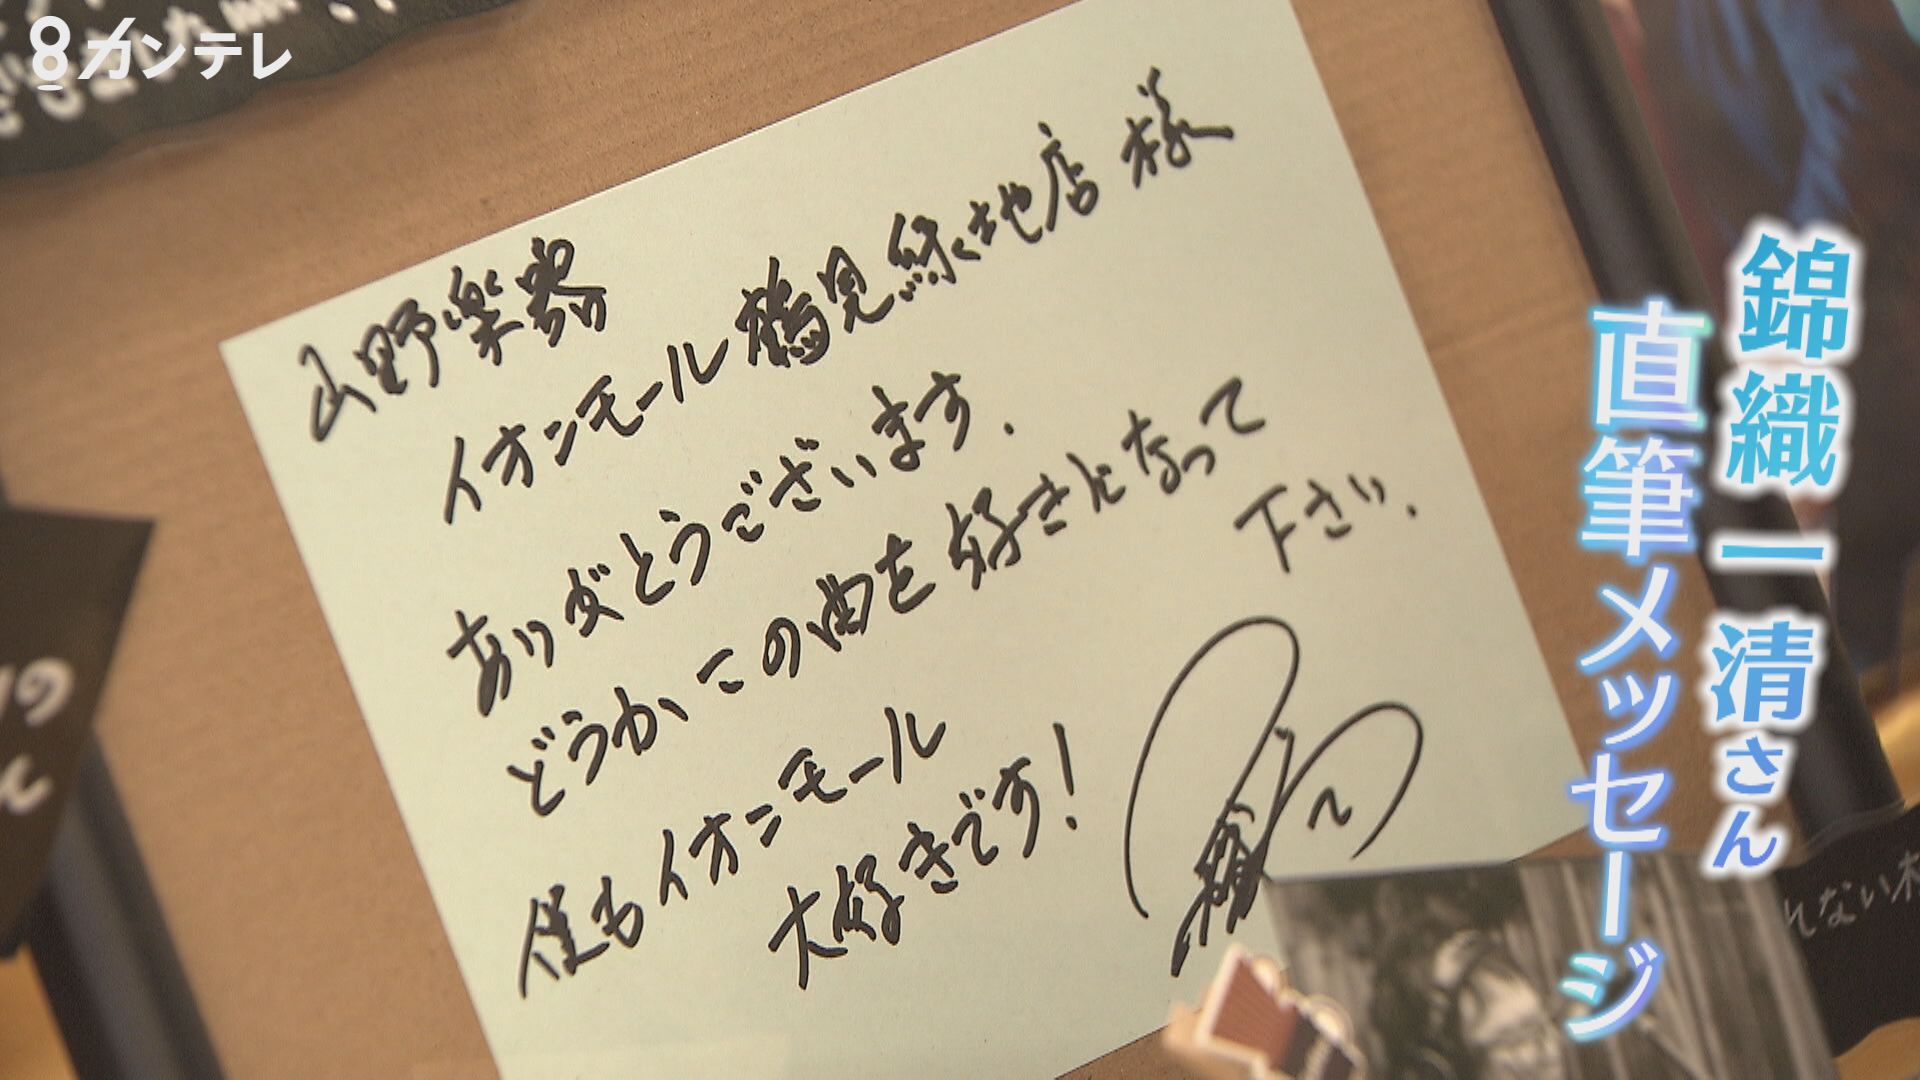 8カンテレ
山野楽器
イオンモール鶴見緑地店 様
ありがとうございます.
どうかこの曲を好きになって
下さい.
僕もイオンモール
大好きです!
錦織一清さん
直筆メッセージ
れない